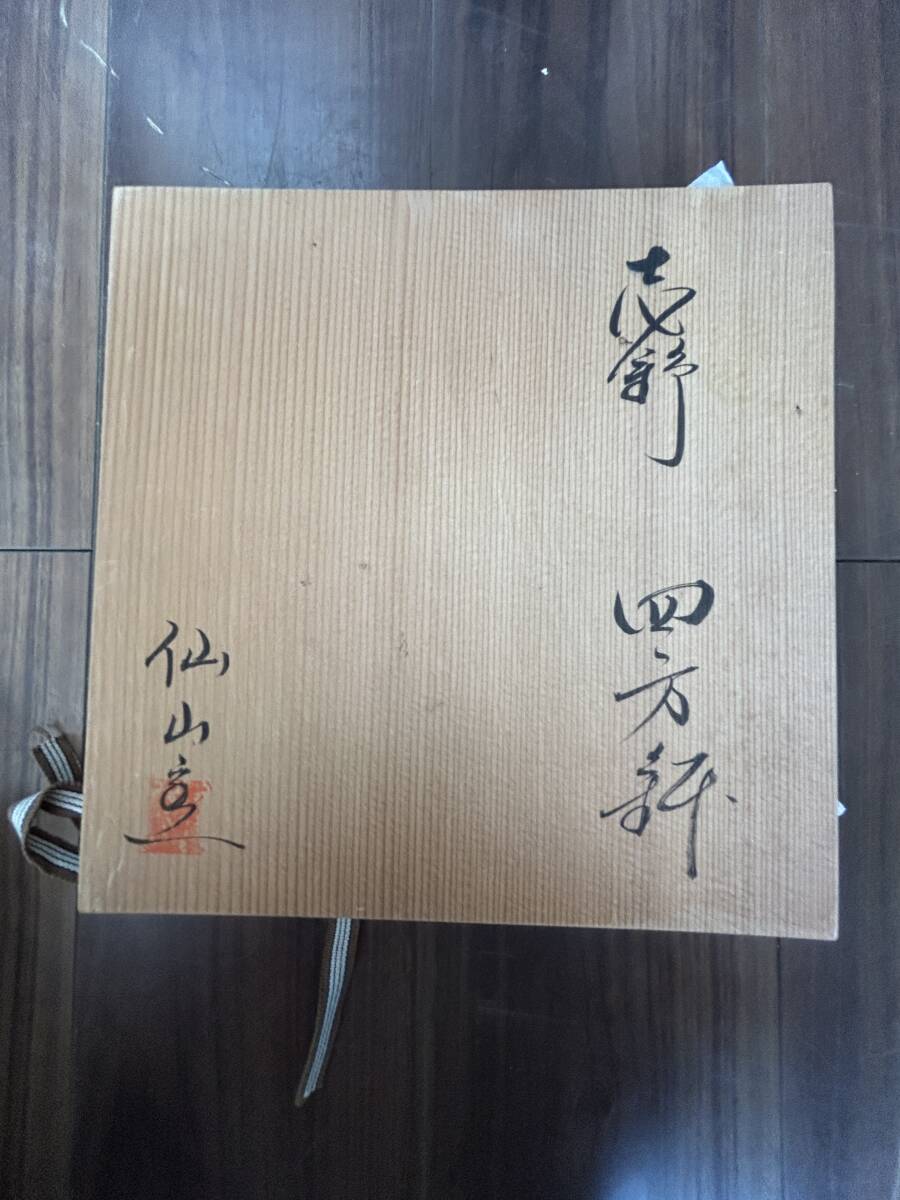 志野 四方鉢
仙山窯